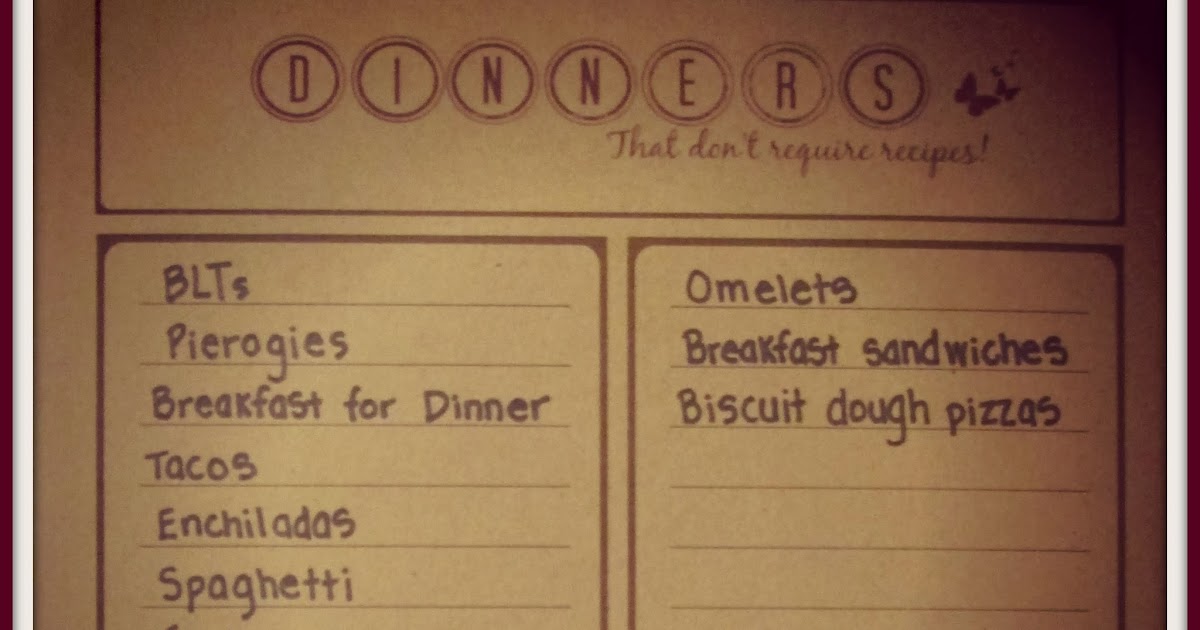 DINNERS
That don't require recipes!
BLTs
Pierogies
Breakfast for Dinner
Tacos
Enchiladas
Spaghetti
Omelets
Breakfast sandwiches
Biscuit dough pizzas